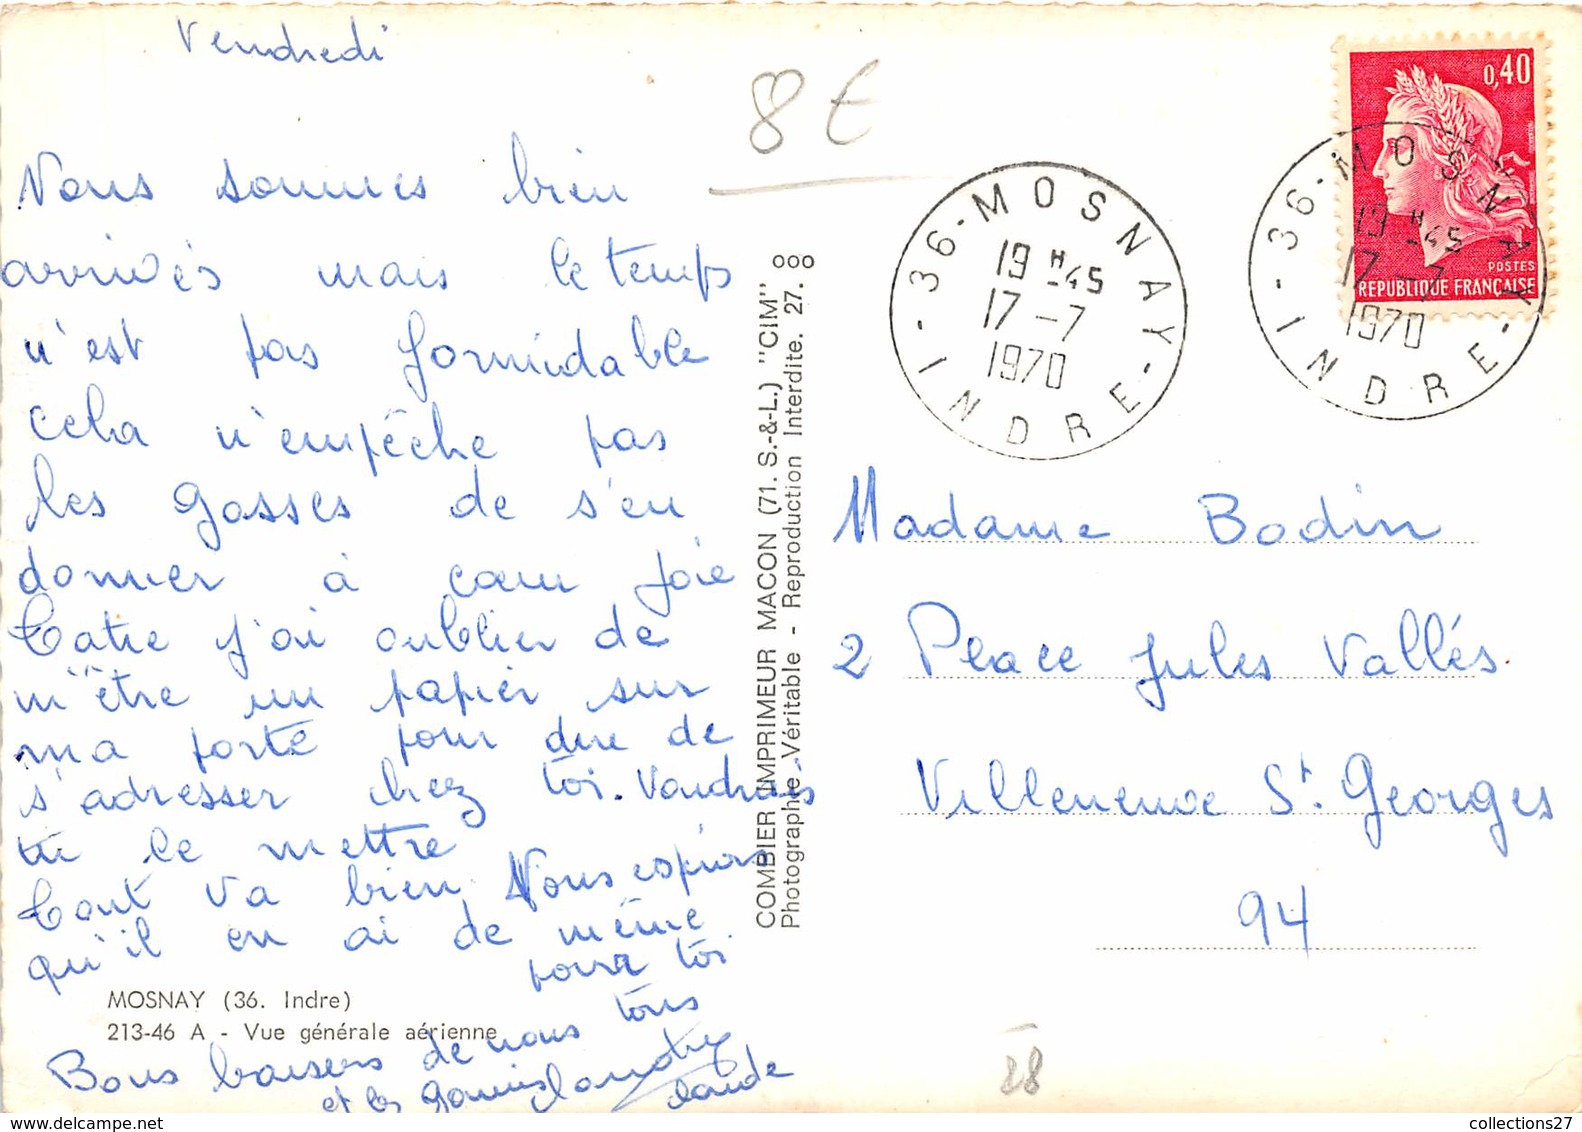 Vendredi
8 €
Nous sommes bien
arrivés mais le temps
n'est pas formidable
cela n'empêche pas
les gosses de s'en
donner à cœur joie
Catie j'ai oublier de
m'être un papier sur
ma porte pour dire de
s'adresser chez toi. Voudrais
tu le mettre
Tout va bien Nous espérons
qu'il en ai de même
pour toi
Bons baisers de nous tous
et les gamins
Claude
MOSNAY (36. Indre)
213-46 A - Vue générale aérienne
COMBIER IMPRIMEUR MACON (71. S.-&-L.) "CIM"
Photographie Véritable - Reproduction Interdite. 27.
36-MOSNAY-INDRE
19 H-45
17-7
1970
0,40
POSTES
REPUBLIQUE FRANÇAISE
36-MOSNAY-INDRE
19 H-45
17-7
1970
Madame Bodin
2 Place Jules Vallés.
Villeneuve St. Georges
94
28
collections27